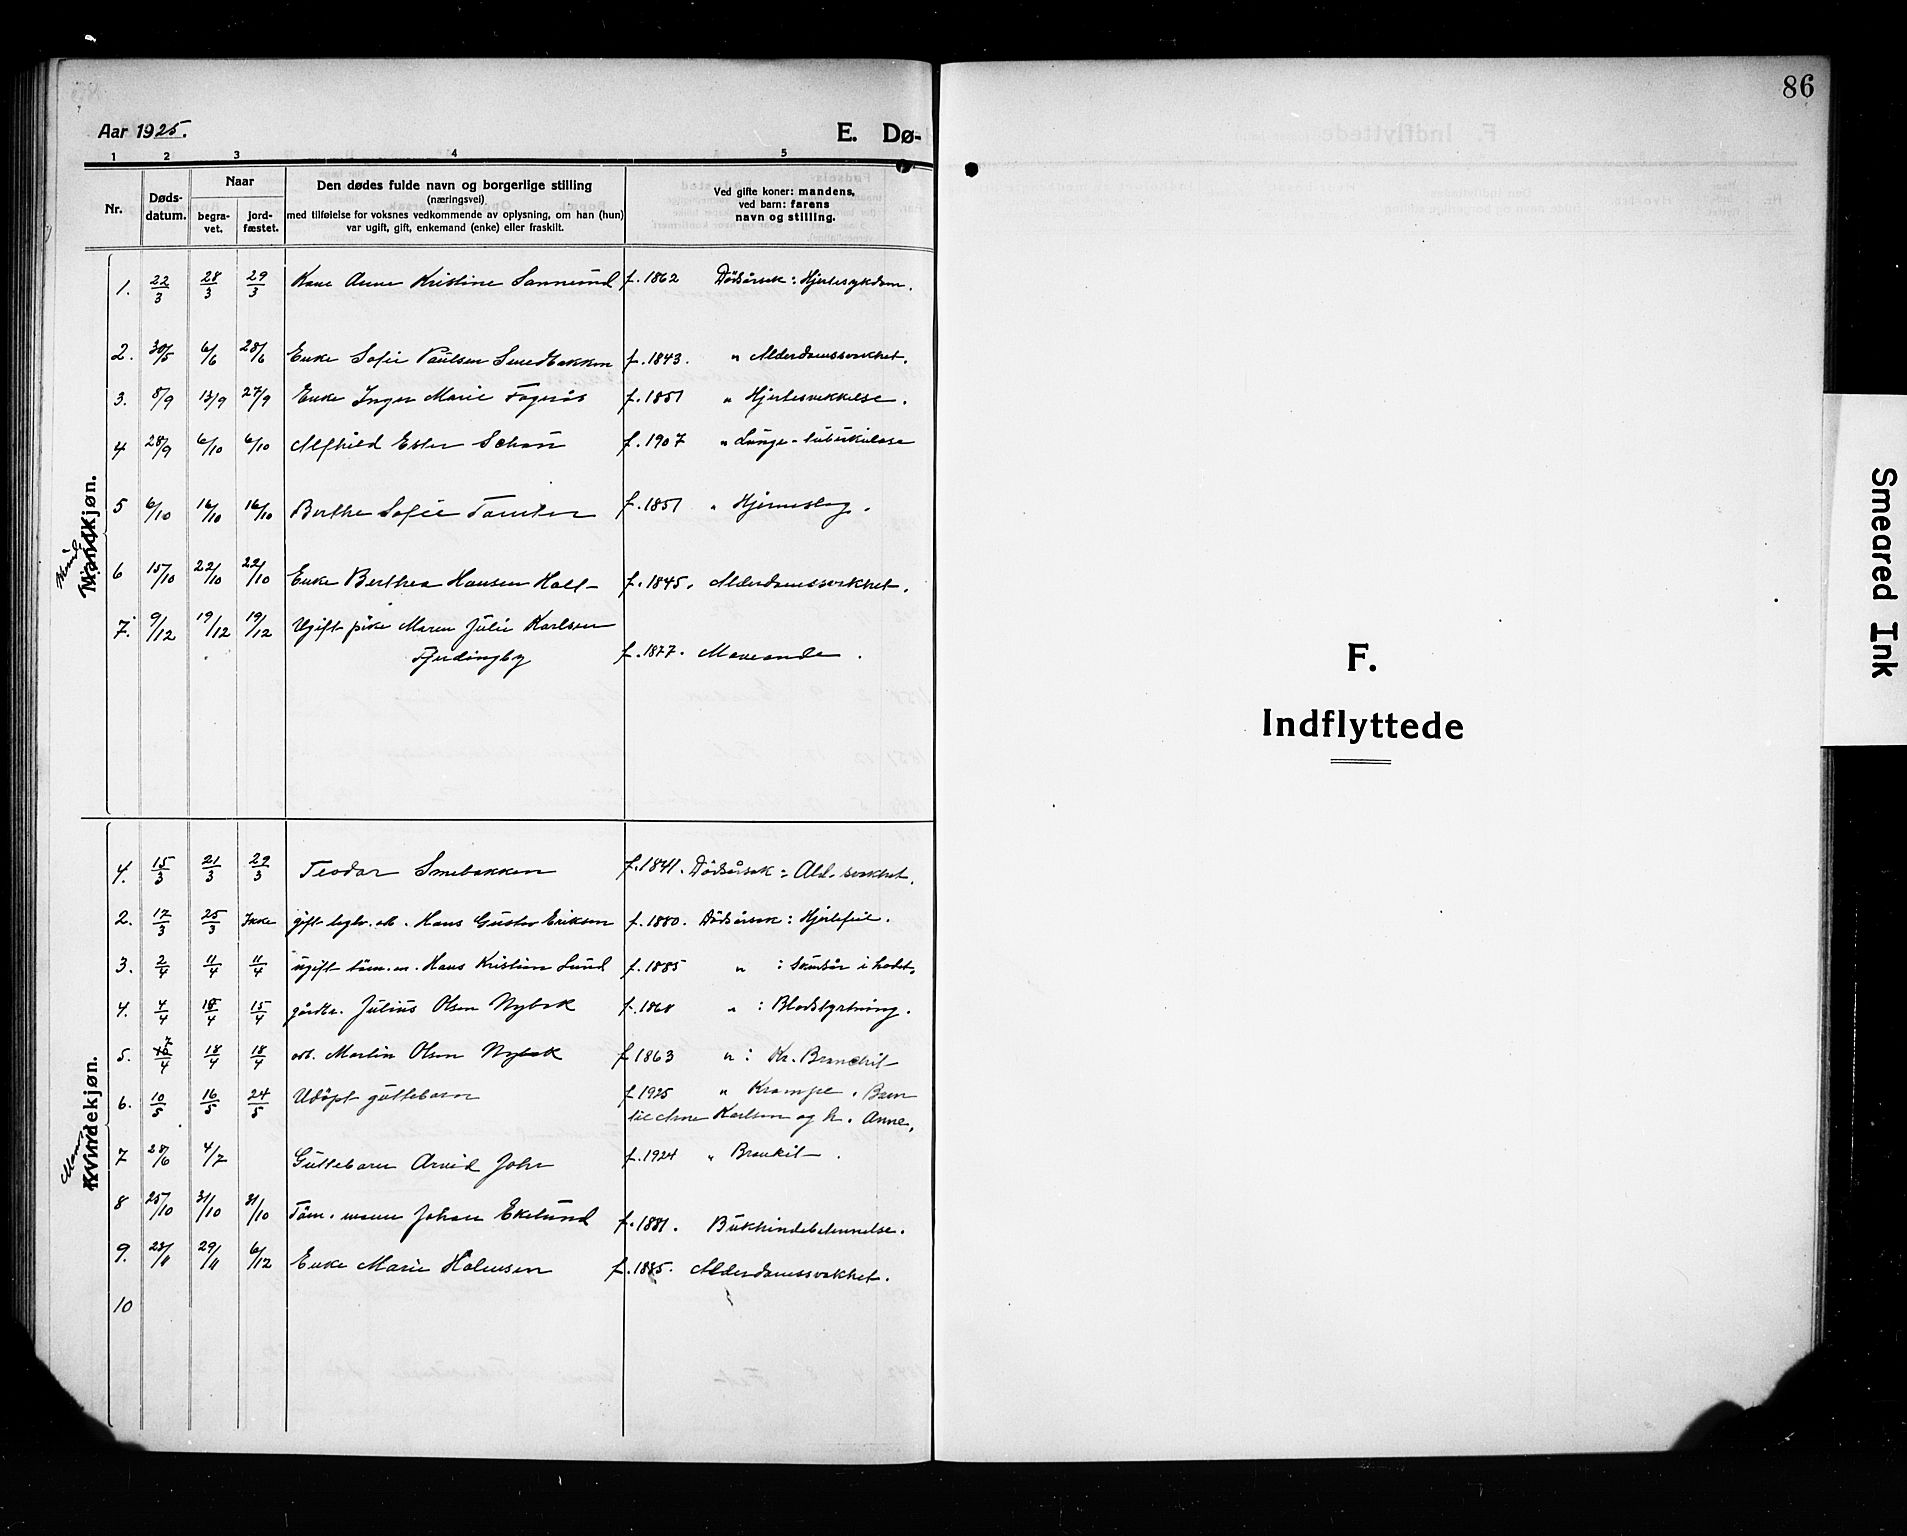 86
Aar 1925.
E. Dø-
1 2 3 4 5
Nr.
Døds-
datum.
Naar
begra-
vet.
jord-
fæstet.
Den dødes fulde navn og borgerlige stilling
(næringsvei)
med tilføielse for voksnes vedkommende av oplysning, om han (hun)
var ugift, gift, enkemand (enke) eller fraskilt.
Ved gifte koner: mandens,
ved barn: farens
navn og stilling.
Kvind
Mandkjøn.
1. 22/3 28/3 29/3 Kone Anne Kristine Sannerud f. 1862 Dödsårsak: Hjertesykdom.
2. 30/5 6/6 28/6 Enke Sofie Paulsen Smedbakken f. 1843. " Alderdomssvakhet.
3. 8/9 13/9 27/9 Enke Inger Marie Fagerås f. 1851 " Hjertesvekkelse.
4 28/9 6/10 6/10 Alfhild Ester Schau f. 1907 " Lunge-tuberkulose
5 6/10 16/10 16/10 Berthe Sofie Tomter f. 1851 " Hjerneslag.
6 15/10 22/10 22/10 Enke Berthea Hansen Holt- f. 1845. Alderdomssvakhet.
7. 9/12 19/12 19/12 Ugift pike Maren Julie Karlsen
Fjerdingby f. 1877. Maveonde.
Mann
Kvindekjøn.
1. 15/3 21/3 29/3 Teodor Smebakken f. 1841. Dödsårsak: Ald. svakhet.
2. 17/3 25/3 Ikke gift Hans Gustav Eriksen f. 1880. Dödsårsak: Hjertefeil.
3. 2/4 11/4 11/4 ugift töm. m. Hans Kristian Lund f. 1885 " : Skudsår i hodet.
4. 4/4 15/4 15/4 gårdbr. Julius Olsen Nybak f. 1868 " : Blodstyrtning.
5. 7/4 18/4 18/4 arb. Martin Olsen Nybak f 1863 " : Kr. Bronchit
6. 10/5 16/5 24/5 Udöpt guttebarn f. 1925 " Krampe. Barn
til Arne Karlsen og h. Anne.
7 28/6 4/7 Guttebarn Arvid John f. 1924 " Bronkit.
8 25/10 31/10 31/10 Töm. mann Johan Ekelund f. 1881. Bukhindebetennelse.
9. 23/11 29/11 6/12 Enke Marie Holmsen f. 1885. Alderdomssvakhet.
10
F.
Indflyttede
Smeared Ink